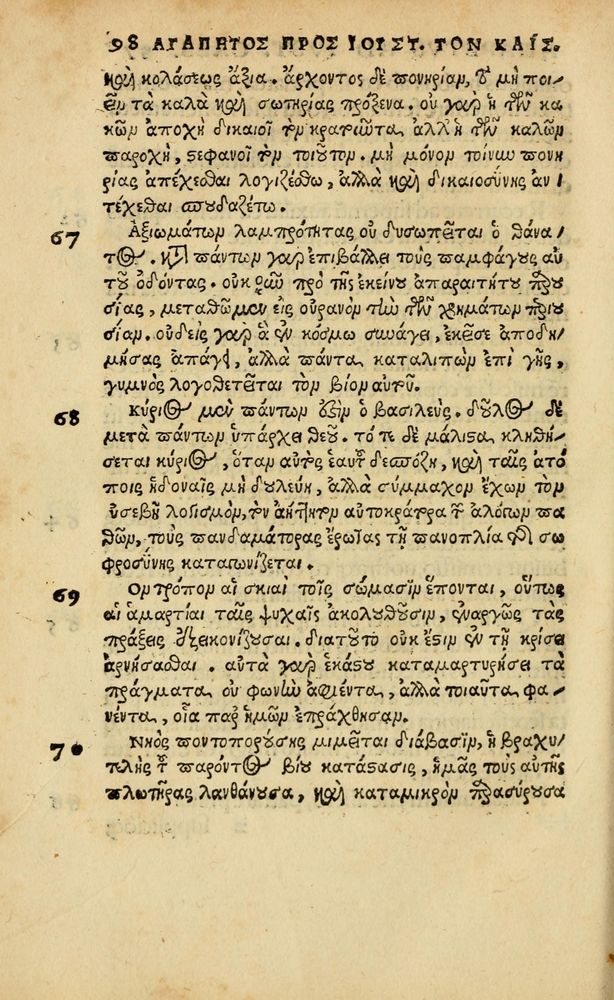 98 ΑΓΑΠΗΤΟΣ ΠΡΟΣ ΙΟΥΣΤ. ΤΟΝ ΚΑΙΣ.
καὶ κολάσεως ἄξια. ἄρχοντος δὲ πονηρίαν, τὸ μὴ ποι-
εῖν τὰ καλὰ καὶ σωτηρίας πρόξενα. οὐ γὰρ ἡ τῶν κα
κῶν ἀποχὴ δικαιοῖ τὸν κρατοῦντα, ἀλλ' ἡ τῶν καλῶν
παροχὴ, στεφανοῖ τὸν τοιοῦτον. μὴ μόνον τοίνυν πονη
ρίας ἀπέχεσθαι λογιζέσθω, ἀλλὰ καὶ δικαιοσύνης ἀν-
τέχεσθαι σπουδαζέτω.
67 Ἀξιωμάτων λαμπρότητας οὐ δυσωπεῖται ὁ θάνα-
τος. κατὰ πάντων γὰρ ἐπιβάλλει τοὺς παμφάγους αὐ
τοῦ ὀδόντας. οὐκοῦν πρὸ τῆς ἐκείνου ἀπαραιτήτου παρου
σίας, μεταθῶμεν εἰς οὐρανὸν τὴν τῶν χρημάτων περιου
σίαν. οὐδεὶς γὰρ ἃ ἐν κόσμω συνάγει, ἐκεῖσε ἀποδη-
μήσας ἀπάγει, ἀλλὰ πάντα καταλιπὼν ἐπὶ γῆς,
γυμνὸς λογοθετεῖται τὸν βίον αὐτοῦ.
68 Κύριος μὲν πάντων ἐστὶν ὁ βασιλεύς. δοῦλος δὲ
μετὰ πάντων ὑπάρχει θεοῦ. τότε δὲ μάλιστα κληθή-
σεται κύριος, ὅταν αὐτὸς ἑαυτοῦ δεσπόζη, καὶ ταῖς ἀτό
ποις ἡδοναῖς μὴ δουλεύη, ἀλλὰ σύμμαχον ἔχων τὸν
εὐσεβῆ λογισμὸν, τὸν ἀήττητον αὐτοκράτορα τῶν ἀλόγων πα
θῶν, τοὺς πανδαμάτορας ἔρωτας τῇ πανοπλία τῆς σω
φροσύνης καταπονίζεται.
69 Ὃν τρόπον αἱ σκιαὶ τοῖς σώμασιν ἕπονται, οὕτως
αἱ ἁμαρτίαι ταῖς ψυχαῖς ἀκολουθοῦσιν, ἐναργῶς τὰς
πράξεις ἐξεικονίζουσαι. διὰ τοῦτο οὐκ ἔστιν ἐν τῇ κρίσει
ἀρνήσασθαι. αὐτὰ γὰρ ἑκάστου καταμαρτυρήσει τὰ
πράγματα, οὐ φωνὴν ἀφιέντα, ἀλλὰ τοιαῦτα φα-
νέντα, οἷα παρ' ἡμῶν ἐπράχθησαν.
70 Νηὸς ποντοπορούσης μιμεῖται διάβασιν, ἡ βραχυ-
τελὴς τοῦ παρόντος βίου κατάστασις, ἡμᾶς τοὺς αὐτῆς
πλωτῆρας λανθάνουσα, καὶ καταμικρὸν παρασύρουσα